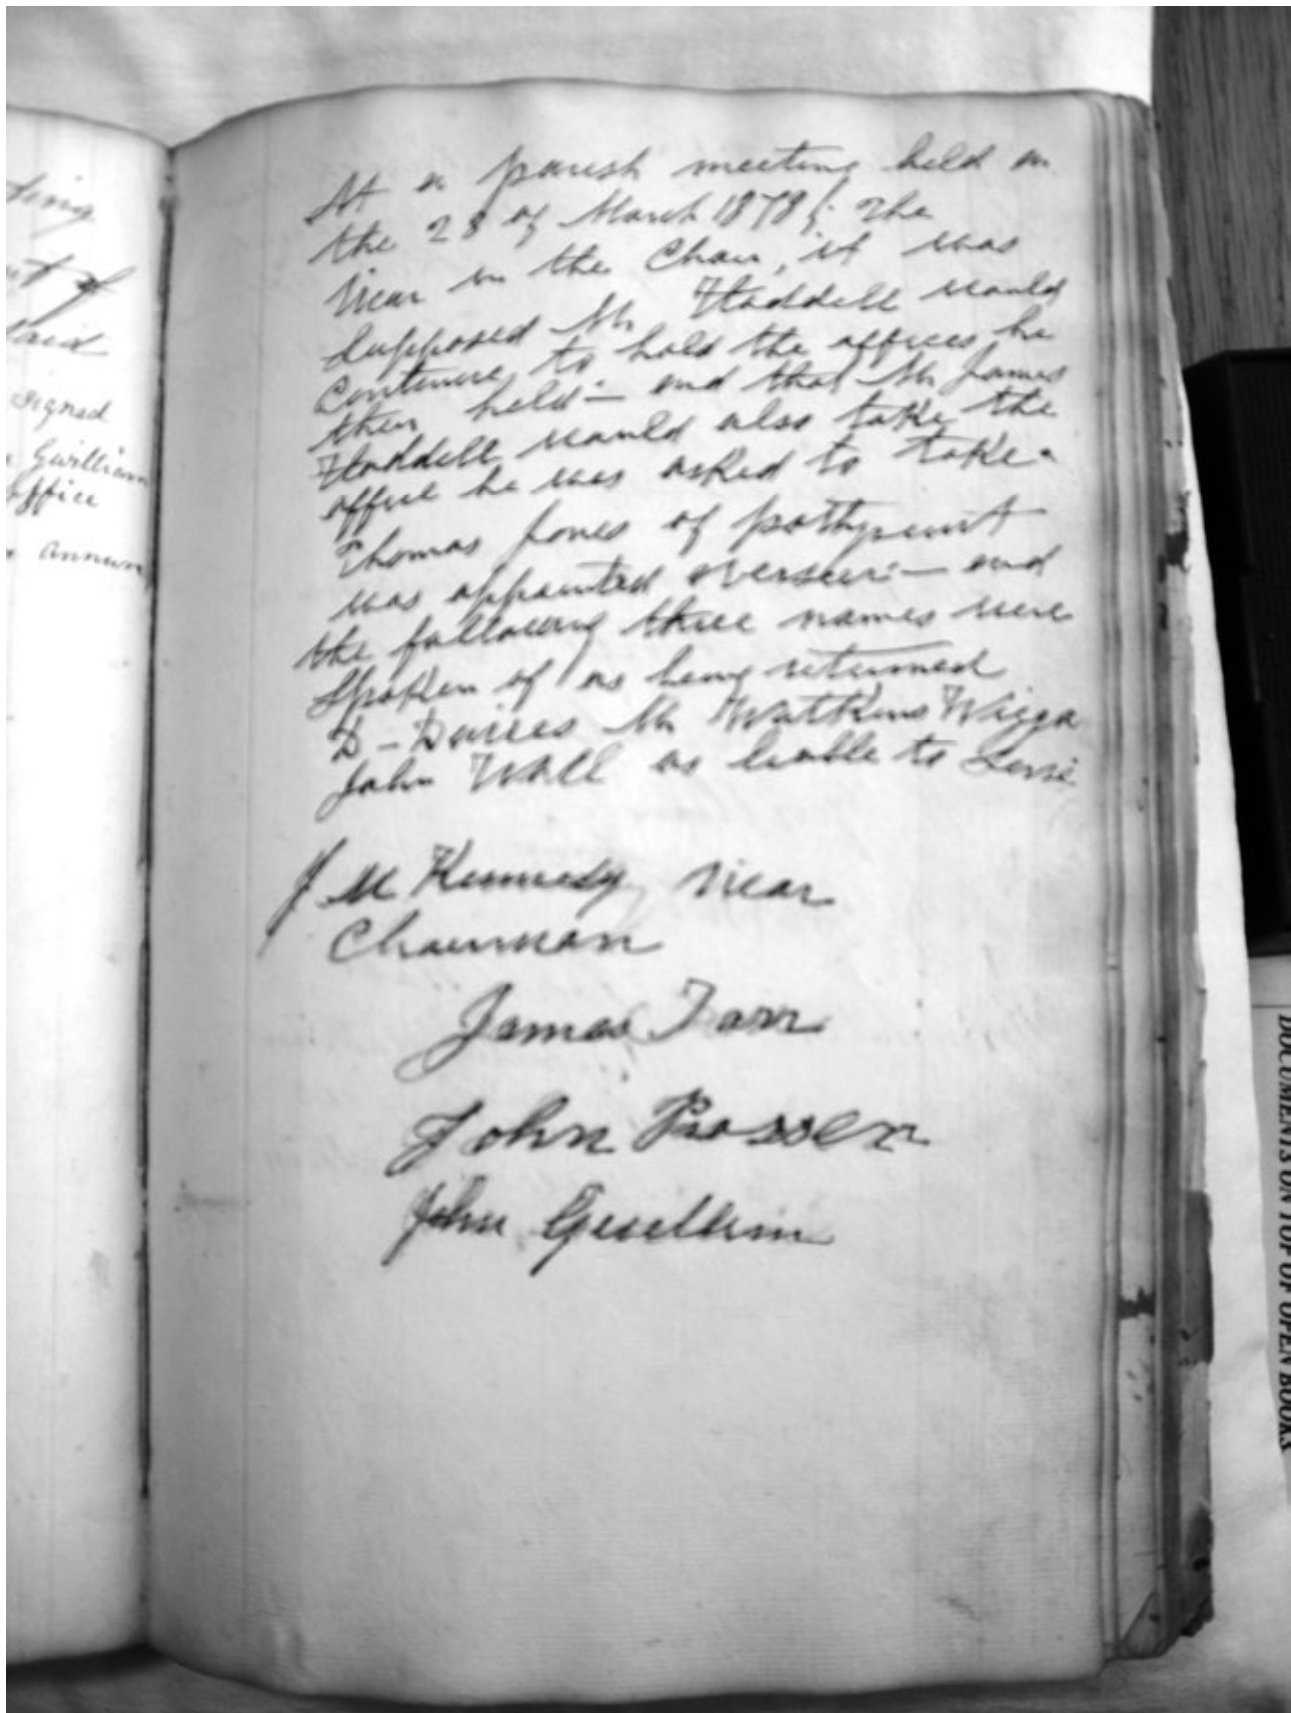 ting
nt of
Paid
signed
Gwilliam
office
annum
At a parish meeting held on
the 28 of March 1878 the
Vicar in the Chair, it was
Supposed Mr Haddell would
Continue to hold the offices he
then held — and that Mr James
Haddell would also take the
office he was asked to take.
Thomas Jones of
was appointed overseer — and
the following three names were
Spoken of as being returned
D - Davies Mr Watkins Wigga
John Wall as liable to Serve
J M Kennedy, Vicar
Chairman
James Farr
John Prosser
John Gwilliam
DOCUMENTS ON TOP OF OPEN BOOKS